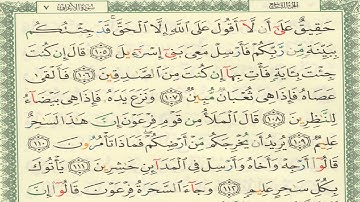 سورة الأعراف ٧ الجزء التاسع
حَقِيقٌ عَلَىٰٓ أَن لَّآ أَقُولَ عَلَى ٱللَّهِ إِلَّا ٱلْحَقَّ ۚ قَدْ جِئْتُكُم
بِبَيِّنَةٍ مِّن رَّبِّكُمْ فَأَرْسِلْ مَعِىَ بَنِىٓ إِسْرَٰٓءِيلَ ١٠٥ قَالَ إِن كُنتَ
جِئْتَ بِـَٔايَةٍ فَأْتِ بِهَآ إِن كُنتَ مِنَ ٱلصَّٰدِقِينَ ١٠٦ فَأَلْقَىٰ
عَصَاهُ فَإِذَا هِىَ ثُعْبَانٌ مُّبِينٌ ١٠٧ وَنَزَعَ يَدَهُۥ فَإِذَا هِىَ بَيْضَآءُ
لِلنَّٰظِرِينَ ١٠٨ قَالَ ٱلْمَلَأُ مِن قَوْمِ فِرْعَوْنَ إِنَّ هَٰذَا لَسَٰحِرٌ
عَلِيمٌ ١٠٩ يُرِيدُ أَن يُخْرِجَكُم مِّنْ أَرْضِكُمْ ۖ فَمَاذَا تَأْمُرُونَ ١١٠
قَالُوٓا۟ أَرْجِهْ وَأَخَاهُ وَأَرْسِلْ فِى ٱلْمَدَآئِنِ حَٰشِرِينَ ١١١ يَأْتُوكَ
بِكُلِّ سَٰحِرٍ عَلِيمٍ ١١٢ وَجَآءَ ٱلسَّحَرَةُ فِرْعَوْنَ قَالُوٓا۟ إِنَّ